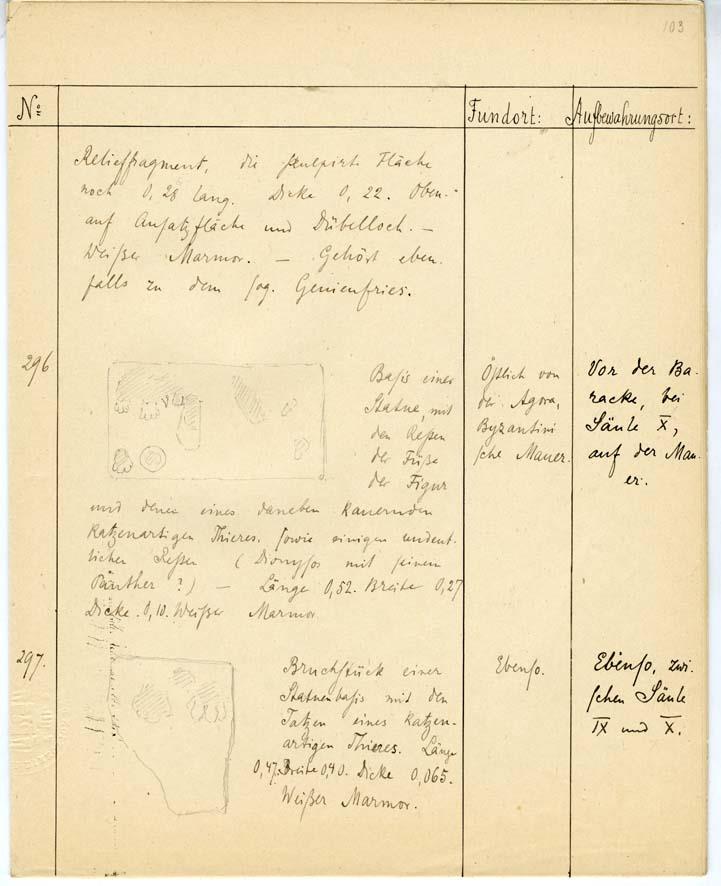 103
No: Fundort: Aufbewahrungsort:
Relieffragment, die skulpirte Fläche
noch 0,28 lang. Dicke 0,22. Oben-
auf Ansatzfläche und Dübelloch. —
Weißer Marmor. — Gehört eben-
falls zu dem sog. Genienfries.
296
Basis einer
Statue mit
den Resten
der Füße
der Figur
und denen eines daneben kauernden
katzenartigen Thieres, sowie einigen undeut-
lichen Resten (Dionysos mit seinem
Panther?) — Länge 0,52. Breite 0,27
Dicke 0,10. Weißer Marmor
Östlich von
der Agora,
Byzantini
sche Mauer.
Vor der Ba-
racke, bei
Säule X,
auf der Mau-
er.
297.
Bruchstück einer
Statuenbasis mit den
Tatzen eines katzen-
artigen Thieres. Länge
0,47. Breite 0,40. Dicke 0,065.
Weißer Marmor.
Ebenso.
Ebenso, zwi-
schen Säule
IX und X.